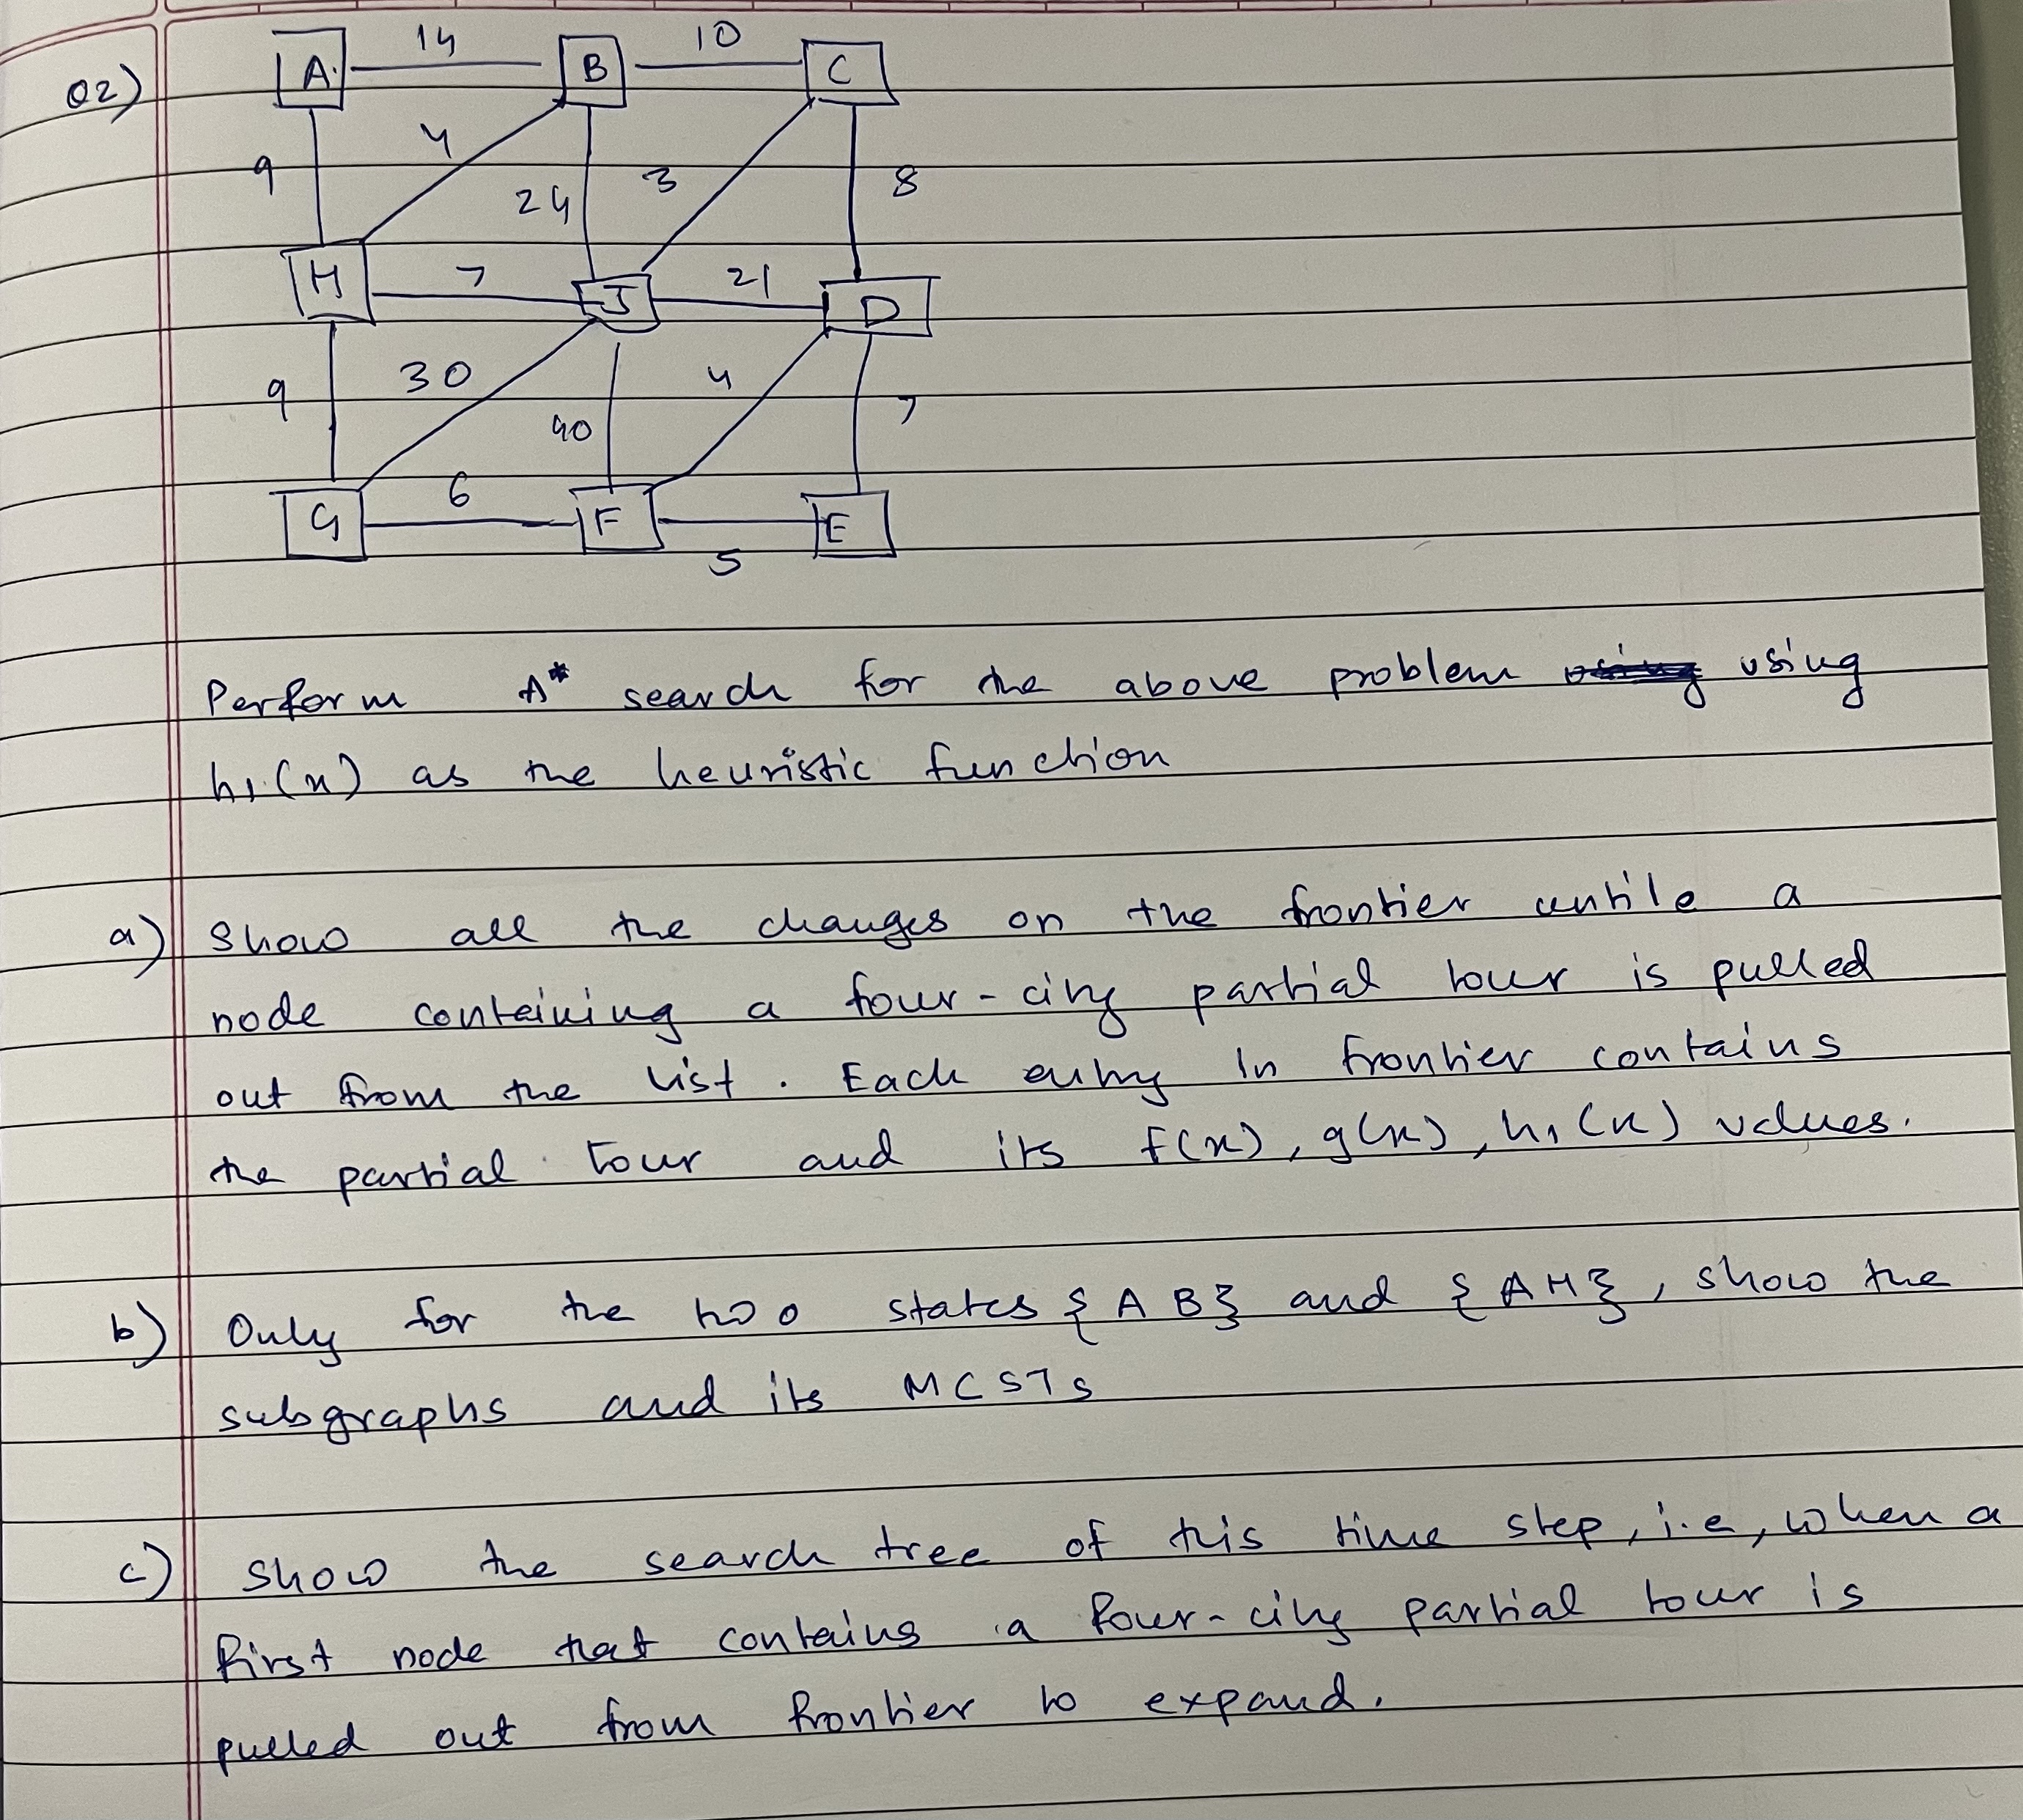 Q2)
A 14 B 10 C
9 4 24 3 8
H 7 J 21 D
9 30 40 4 7
G 6 F E
5
Perform A* search for the above problem using
h₁(x) as the heuristic function
a) Show all the changes on the frontier untile a
node conteining a four-city partial tour is pulled
out from the list. Each entry in frontier contains
the partial tour and its f(x), g(x), h₁(x) values.
b) Only for the two states {AB} and {AH}, show the
subgraphs and its MCSTs
c) Show the search tree of this time step, i.e, when a
first node that contains a four-city partial tour is
pulled out from frontier to expand.